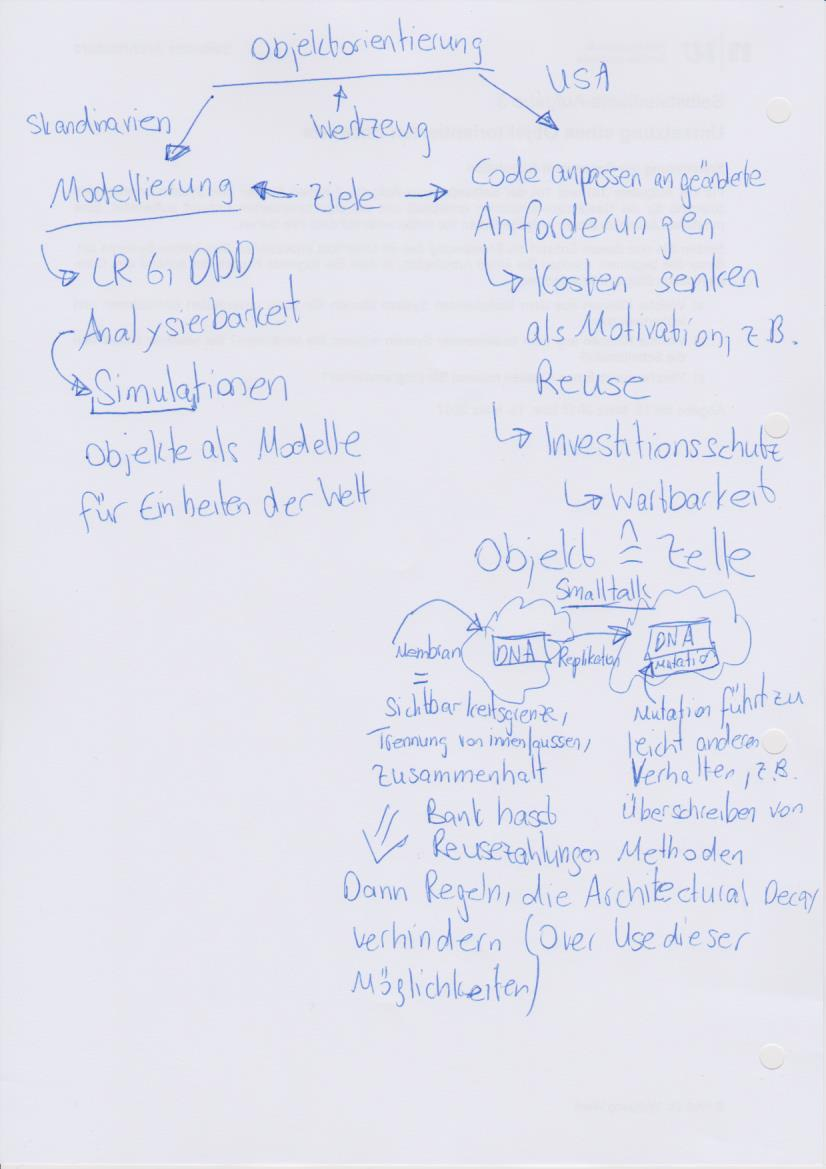 Objektorientierung
Skandinavien
Werkzeug
USA
Modellierung
Ziele
Code anpassen an geänderte
Anforderungen
CR 6, DDD
Analysierbarkeit
Simulationen
Objekte als Modelle
für Einheiten der Welt
Kosten senken
als Motivation, z.B.
Reuse
Investitionsschutz
Wartbarkeit
Objekt ≙ Zelle
Smalltalk
Membran
DNA
Replikation
DNA
Mutation
=
Sichtbarkeitsgrenze,
Trennung von innen/aussen,
Zusammenhalt
Mutation führt zu
leicht anderen
Verhalten, z.B.
Überschreiben von
Methoden
Bank hasst
Reusezahlungen
Dann Regeln, die Architectural Decay
verhindern (Over Use dieser
Möglichkeiten)